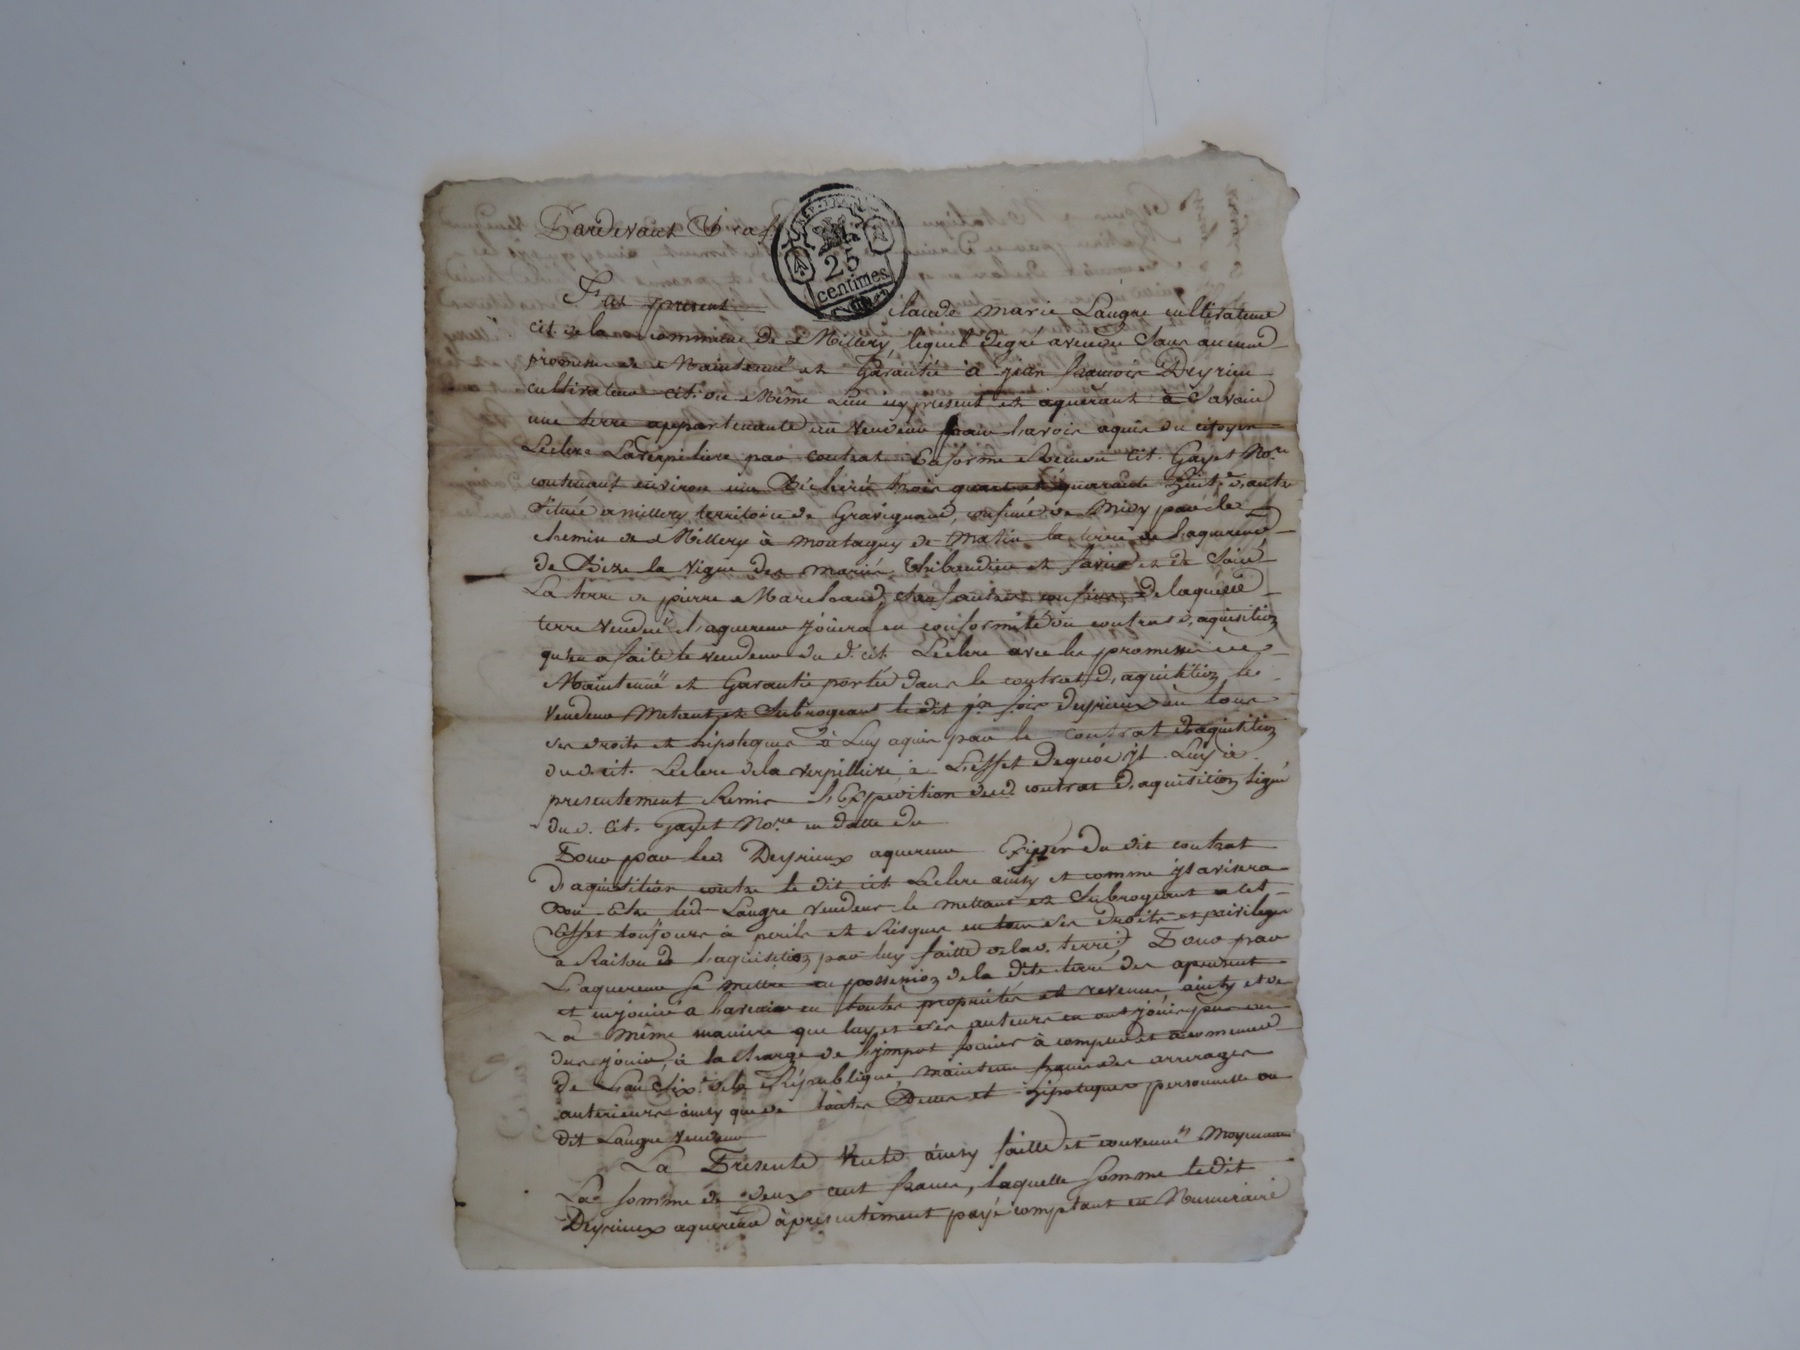 Pardevant
25
centimes
Fut present Claude Marie Laugre cultivateur
cit. de la commune de Millery, lequel degré a vendu sans aucune
promesse de Maintenue et Garantie à jean francois Deyrieu
cultivateur cit. du Même Lieu icy present et aquerant à Savoir
une terre appartenante au vendeur pour l'avoir aquis du citoyen
Leclere Laverpiliere par contrat En forme Recu du cit. Gayet No.re
contenant environ une Bicherée trois quarts et quarante huit.e d'autre
Située a millery territoire de Gravignand, confinée de Midy par le
chemin de Millery à montagny de Matin la terre de l'aquereur
de Bize la Vigne des mariés Thibaudier et favre et de Soir
La terre de pierre Marchand, Sauf autres confins, de laquelle
terre vendue L'aquereur jouira en conformité du contrat d'aquisition
qu'en a faite le vendeur du d. cit. Leclere avec les promesses de
Maintenue et Garantie portée dans le contrat d'aquisition le
Vendeur Metant et Subrogeant le dit jn. fois Deyrieux en tous
ses droits et hipoteques à Luy aquis par le contrat d'aquisition
du d. cit. Leclere de la verpilliere, à L'effet dequoi il Luy a
presentement Remis L'Expedition du d. contrat d'aquisition Signé
du d. cit. Gayet No.re en datte du
Pour par led. Deyrieux aquereur Exiger du dit contrat
d'aquisition contre le dit cit Leclere ainsy et comme il avisera
led. Laugre vendeur le mettant et Subrogeant a cet
Effet toujours à perils et Risques en tous ses Droits et privileges
a Raison de l'aquisition par luy faitte de la d. terre. Pour par
L'aquereur se mettre en possession de la dite terre des apresent
et en jouir a l'avenir en toutes proprietés et revenus ainsy et de
La même maniere que luy et ses auteurs en ont jouis
du jouir, à la charge de l'impot foncier à compter et a commencé
de L'an Six.e de la République, maintenu franc des arrerages
anterieurs ainsy que de toutes Dettes et hipoteques personnelle au
dit Laugre vendeur
La Presente Vente ainsy faitte et convenue Moyennant
La somme de deux cent francs, laquelle somme le dit
Deyrieux aquereur à presentement payé comptant en Numeraire